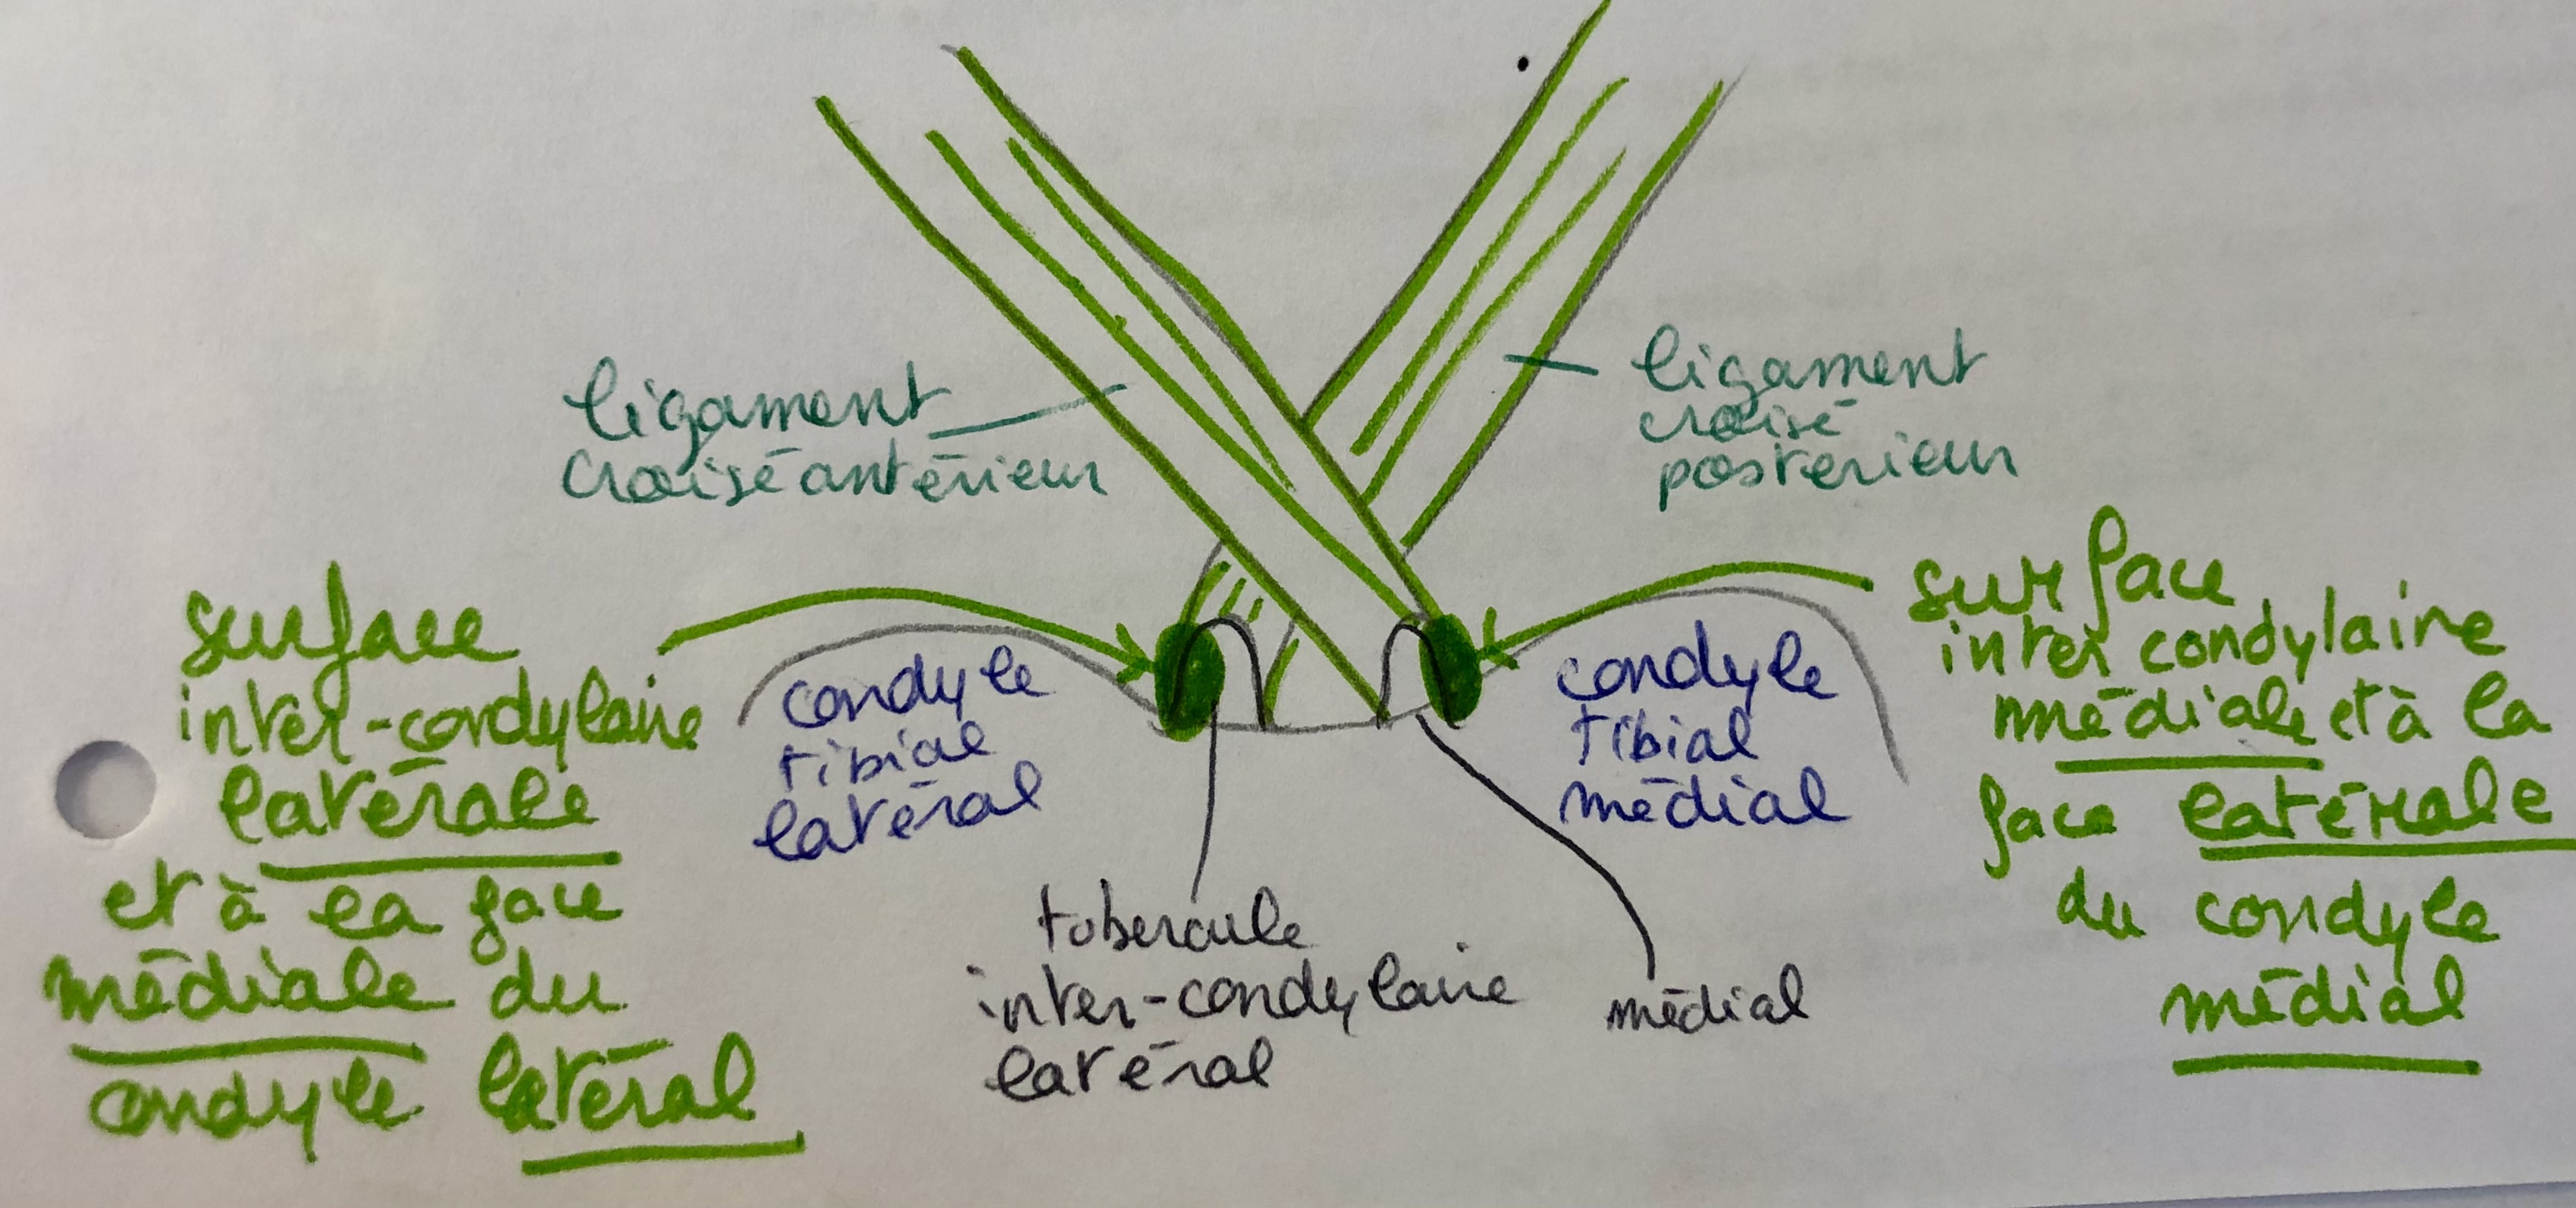 ligament
croisé antérieur
ligament
croisé
postérieur
surface
inter-condylaire
latérale
et à la face
médiale du
condyle latéral
condyle
tibial
latéral
condyle
tibial
médial
surface
inter condylaire
médiale et à la
face latérale
du condyle
médial
tubercule
inter-condylaire
latéral
médial